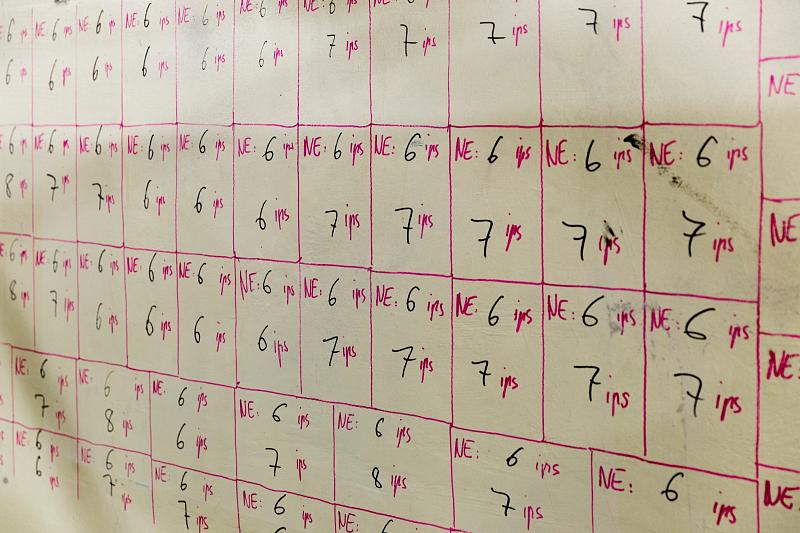 6 NE: 6 ips NE: 6 ips NE: 6 ips NE: 6 ips NE: 6 ips NE: 6 ips
6 ips 6 ips 6 ips 6 ips 6 ips 6 ips 7 ips 7 ips 7 ips 7 ips 7 ips
NE
6 ips NE: 6 ips NE: 6 ips NE: 6 ips NE: 6 ips NE: 6 ips NE: 6 ips NE: 6 ips NE: 6 ips NE: 6 ips NE: 6 ips
8 ips 7 ips 7 ips 6 ips 6 ips 6 ips 7 ips 7 ips 7 ips 7 ips 7 ips
NE
6 ips NE: 6 ips NE: 6 ips NE: 6 ips NE: 6 ips NE: 6 ips NE: 6 ips NE: 6 ips NE: 6 ips NE: 6 ips NE: 6 ips
8 ips 7 ips 6 ips 6 ips 6 ips 6 ips 7 ips 7 ips 7 ips 7 ips 7 ips
NE:
NE: 6 ips NE: 6 ips NE: 6 ips NE: 6 ips NE: 6 ips NE: 6 ips NE: 6 ips NE:
7 ips 8 ips 6 ips 7 ips 8 ips 7 ips
NE: 6 ips NE: 6 ips NE: 6 ips NE: 6 ips NE:
6 ips 7 ips 7 ips